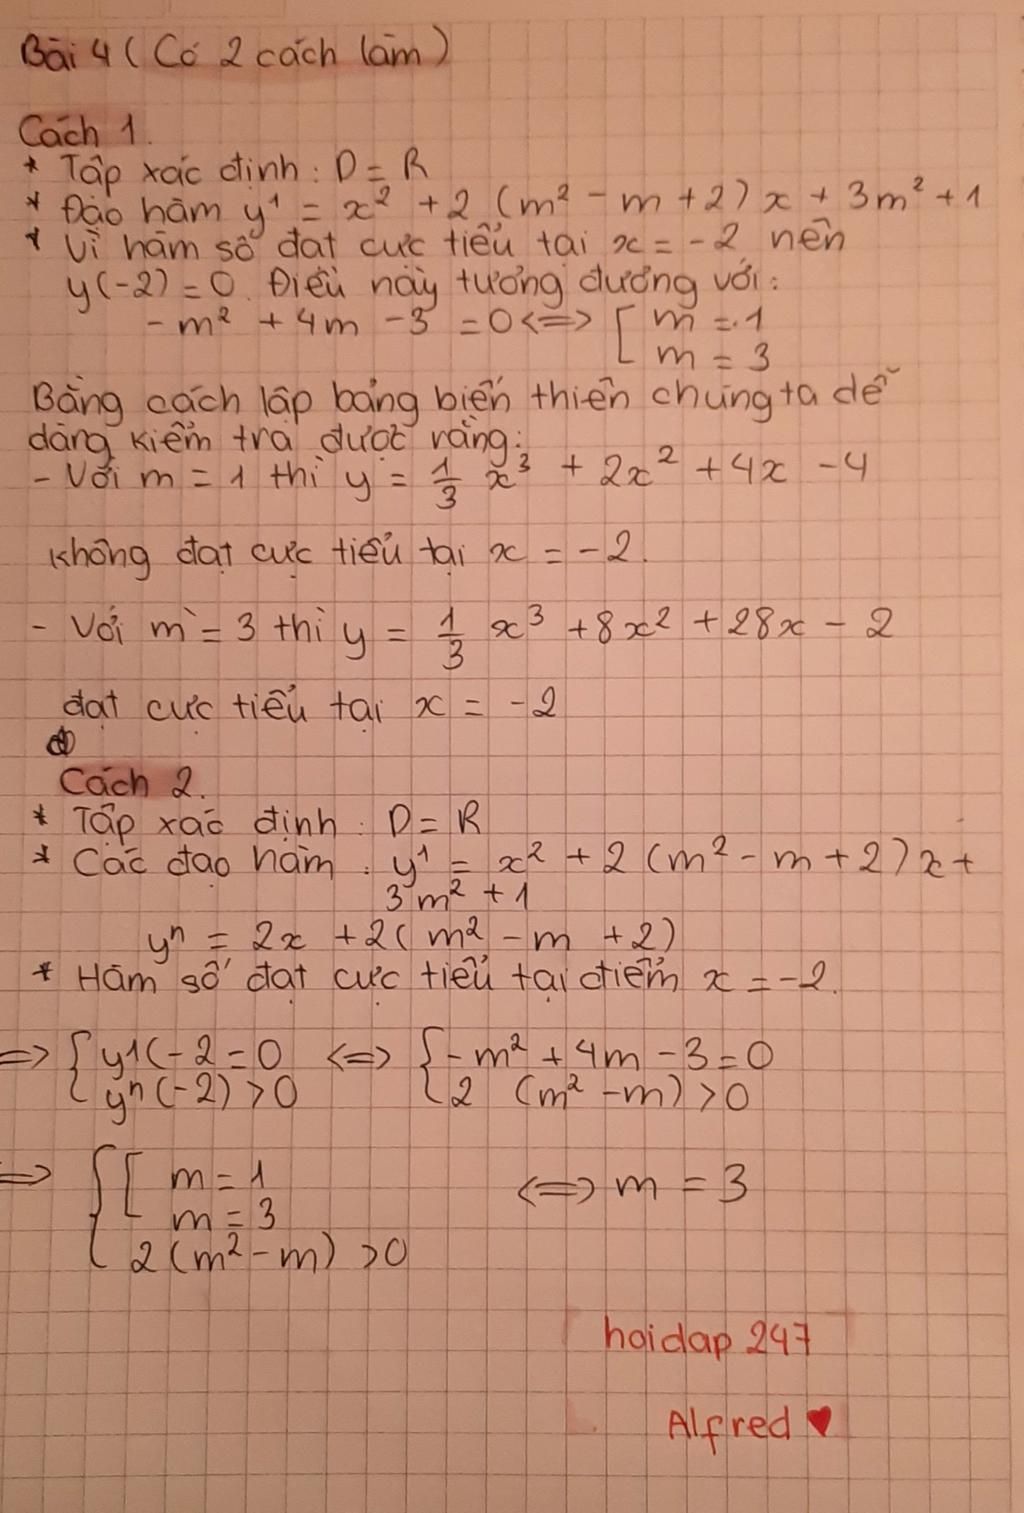 Bài 4 (Có 2 cách làm)
Cách 1.
* Tập xác định: D = R
* Đạo hàm y¹ = x² + 2 (m² - m + 2) x + 3m² + 1
* Vì hàm số đạt cực tiểu tại x = -2 nên
y(-2) = 0. Điều này tương đương với:
-m² + 4m - 3 = 0 <=> [ m = 1
[ m = 3
Bằng cách lập bảng biến thiên chúng ta dễ
dàng kiểm tra được rằng:
- Với m = 1 thì y = 1/3 x³ + 2x² + 4x - 4
không đạt cực tiểu tại x = -2.
- Với m = 3 thì y = 1/3 x³ + 8x² + 28x - 2
đạt cực tiểu tại x = -2
Cách 2.
* Tập xác định: D = R
* Các đạo hàm: y¹ = x² + 2 (m² - m + 2) x +
3m² + 1
yⁿ = 2x + 2( m² - m + 2)
* Hàm số đạt cực tiểu tại điểm x = -2.
=> { y1(-2 = 0 <=> { -m² + 4m - 3 = 0
{ yⁿ(-2) > 0 { 2 (m² - m) > 0
=> { [ m = 1 <=> m = 3
[ m = 3
{ 2 (m² - m) > 0
hoidap 247
Alfred ♥